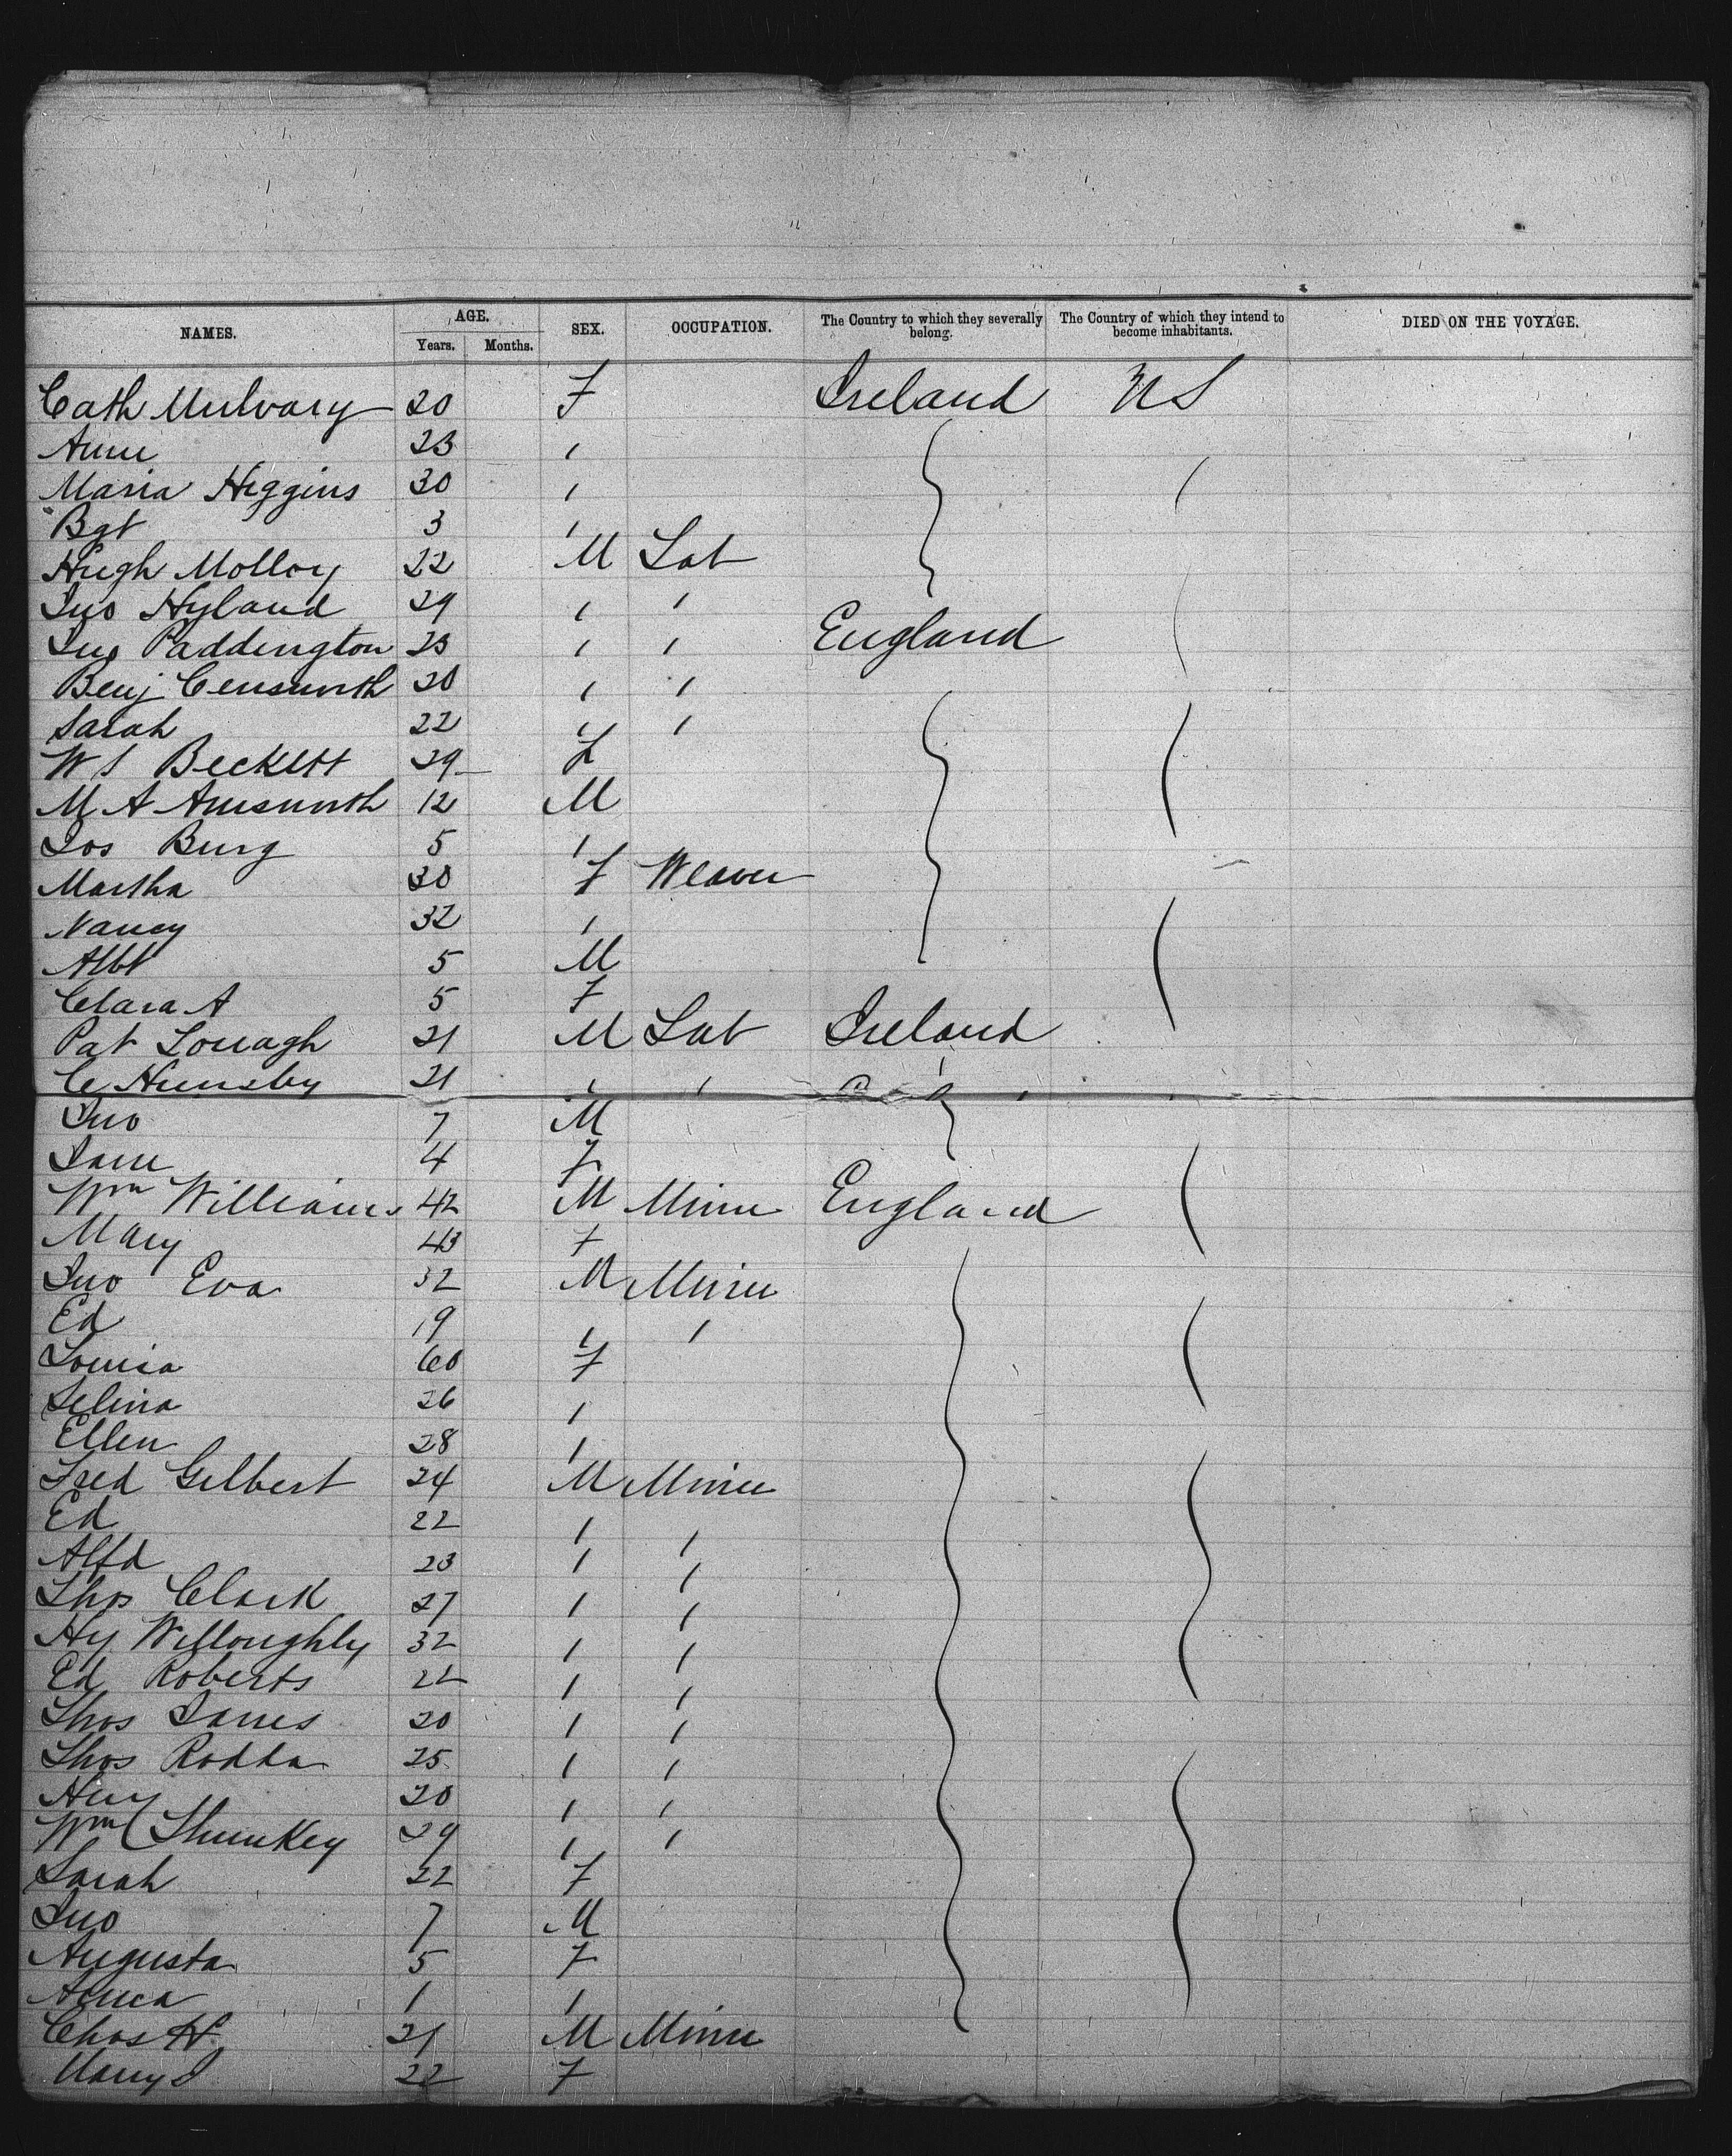 NAMES. AGE. Years. Months. SEX. OCCUPATION. The Country to which they severally belong. The Country of which they intend to become inhabitants. DIED ON THE VOYAGE.
Cath Mulvary 20 F Ireland US
Anne 23 "
Maria Higgins 30 "
Bgt 3 "
Hugh Molloy 22 M Lab
Jno Hyland 29 " "
Jno Paddington 23 " " England
Benj 20 " "
Sarah 22 " "
W S Beckett 29 F
M A 12 M
Jos Burg 5 "
Martha 30 F Weaver
Nancy 32 "
Albt 5 M
Clara A 5 F
Pat 21 M Lab Ireland
C Hunsby 21 " "
Jno 7 M
Jane 4 F
Wm Williams 42 M Miner England
Mary 43 F
Jno Eva 32 M Miner
Ed 19 " "
Louisa 60 F
Selina 26 "
Ellen 28 "
Fred Gilbert 24 M Miner
Ed 22 " "
Alfd 23 " "
Thos Clark 27 " "
Hy Willoughby 32 " "
Ed Roberts 22 " "
Thos James 20 " "
Thos Rodda 25 " "
Hy 20 " "
Wm 29 " "
Sarah 22 F
Jno 7 M
Augusta 5 F
1 "
Chas H 21 M Miner
22 F